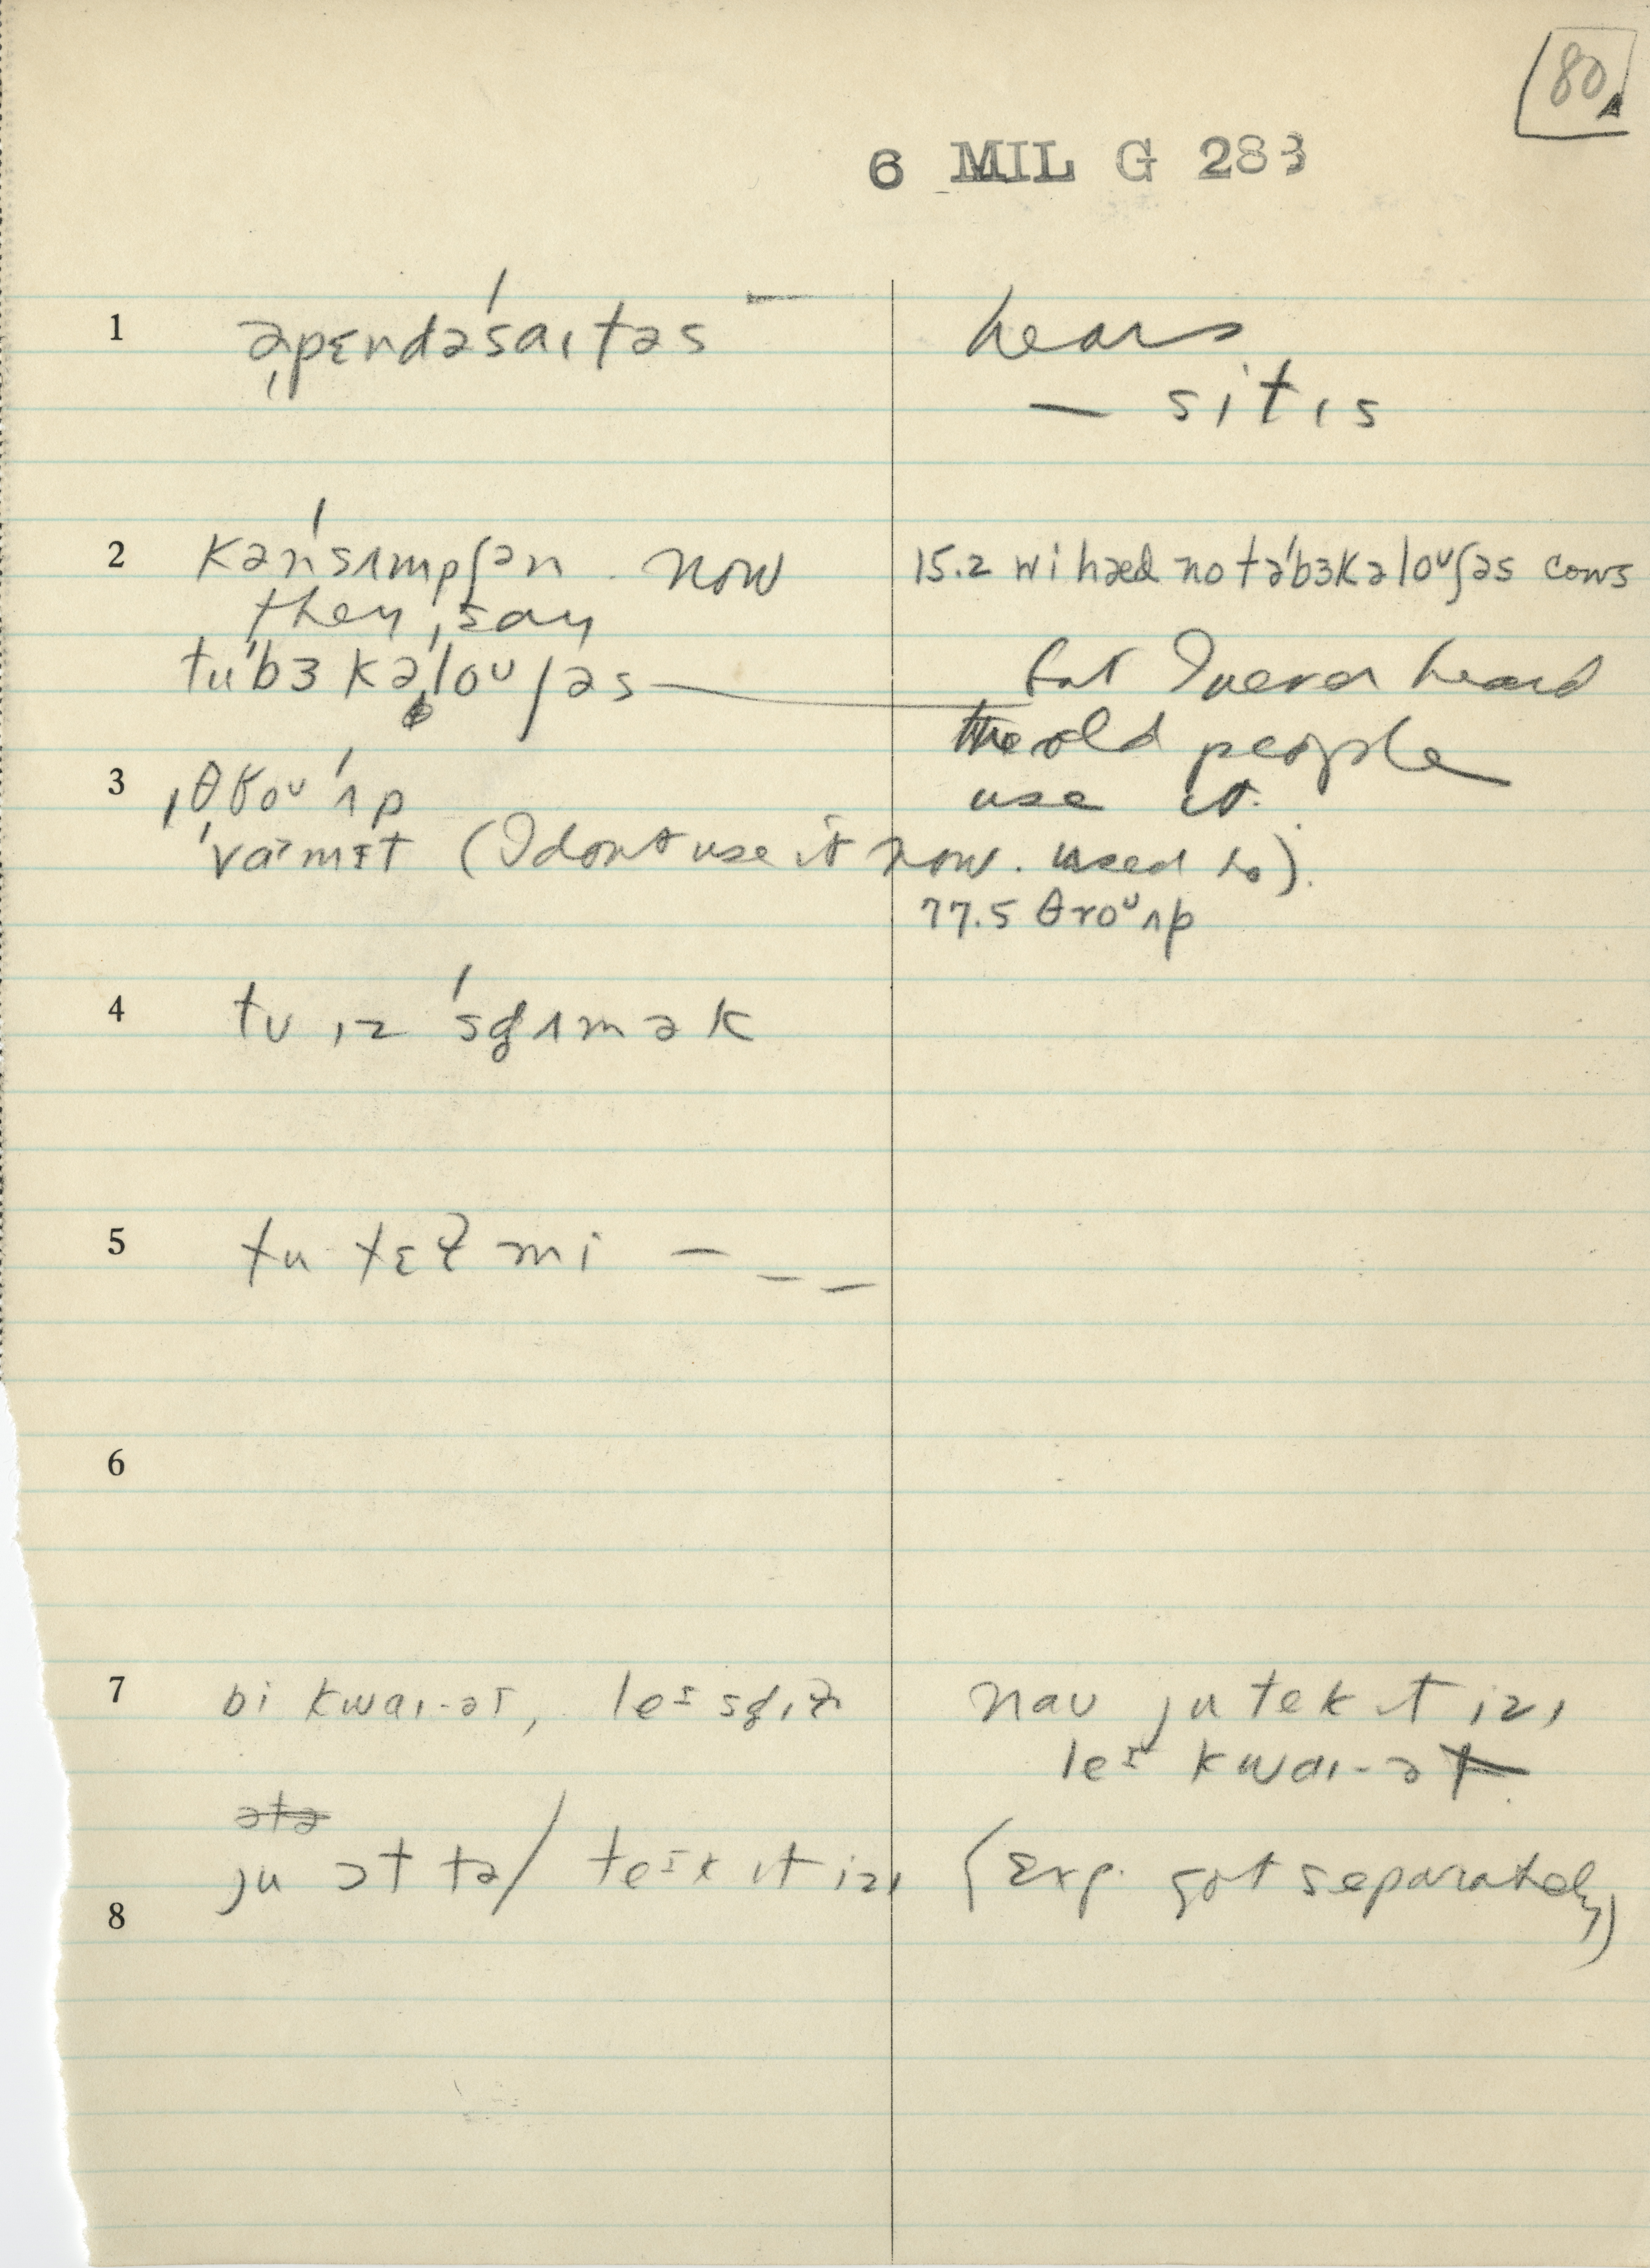 80
6 MIL G 283
1 əˌpɛndəˈsaɪtəs hears
— sitɪs
2 kənˈsʌmpʃən. now 15.2 wi hæd no təˈbɜkəloᴜʃəs cows
they say
tuˈbɜkəˈloᴜʃəs — but I never heard
the old people
use it.
3 ˌθroᴜˈʌp
ˈvarmɪt (I dont use it now. used to).
77.5 θroᴜʌp
4 tu ɪz ˈsɡʌmək
5 tu tɛɫ mi — — —
6
7 bi kwaɪ-ət, leɪs naʊ ju tek ɪt izɪ
leɪ kwaɪ-ət
ətə
ju ɔt tə/ teɪk ɪt izɪ (Exp. got separately)
8